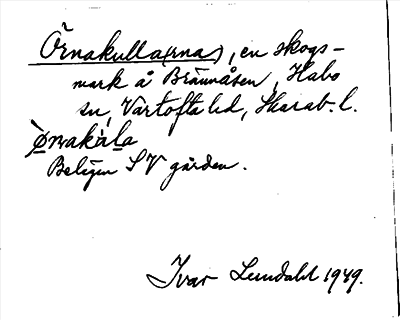 Örnakulla(rna), en skogs-
mark å Brännåsen, Habo
sn, Vartofta hd, Skarab. l.
Ørnakúla
Belägen SV gården.
Ivar Lundahl 1949.